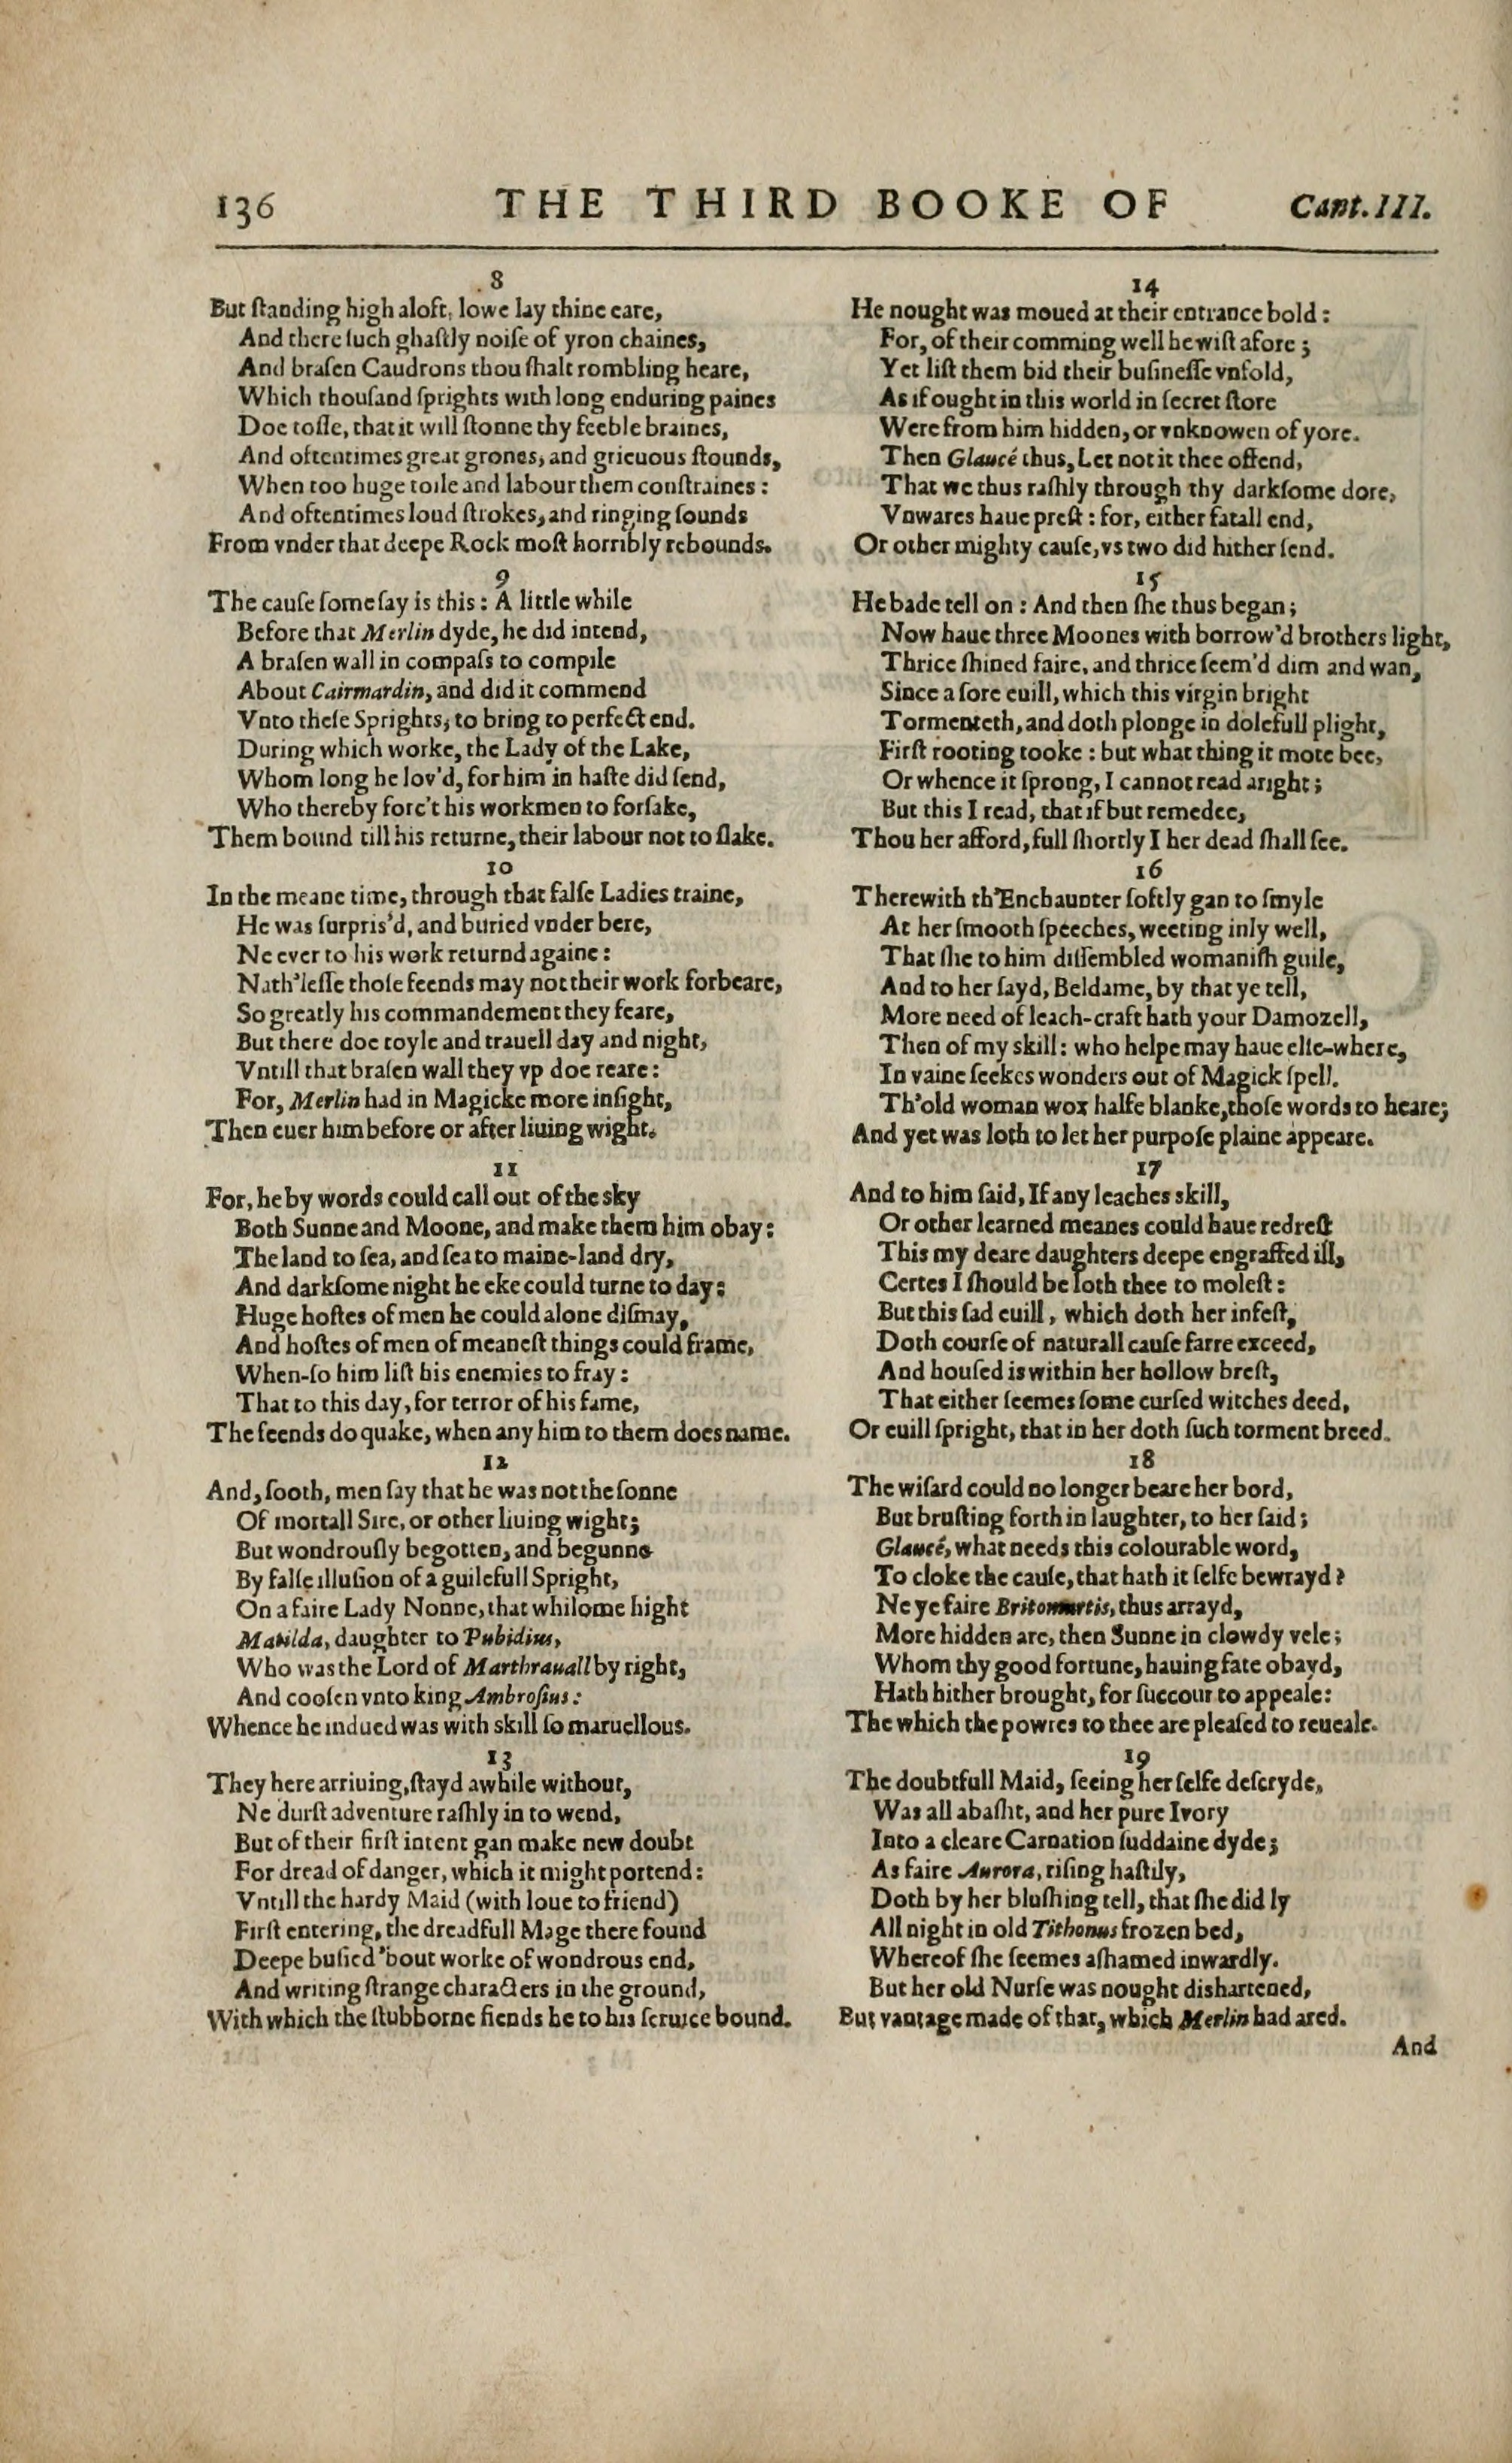 136 THE THIRD BOOKE OF Cant. III.
8
But ſtanding high aloft, lowe lay thine eare,
And there ſuch ghaſtly noiſe of yron chaines,
And braſen Caudrons thou ſhalt rombling heare,
Which thouſand ſprights with long enduring paines
Doe toſſe, that it will ſtonne thy feeble braines,
And oftentimes great grones, and grieuous ſtounds,
When too huge toile and labour them conſtraines:
And oftentimes loud ſtrokes, and ringing ſounds
From vnder that deepe Rock moſt horribly rebounds.
9
The cauſe ſome ſay is this: A little while
Before that Merlin dyde, he did intend,
A braſen wall in compaſs to compile
About Cairmardin, and did it commend
Vnto theſe Sprights, to bring to perfect end.
During which worke, the Lady of the Lake,
Whom long he lov'd, for him in haſte did ſend,
Who thereby forc't his workmen to forſake,
Them bound till his returne, their labour not to ſlake.
10
In the meane time, through that falſe Ladies traine,
He was ſurpris'd, and buried vnder bere,
Ne ever to his work returnd againe:
Nath'leſſe thoſe feends may not their work forbeare,
So greatly his commandement they feare,
But there doe toyle and trauell day and night,
Vntill that braſen wall they vp doe reare:
For, Merlin had in Magicke more inſight,
Then euer him before or after liuing wight.
11
For, he by words could call out of the sky
Both Sunne and Moone, and make them him obay:
The land to ſea, and ſea to maine-land dry,
And darkſome night he eke could turne to day:
Huge hoſtes of men he could alone diſmay,
And hoſtes of men of meaneſt things could frame,
When-ſo him liſt his enemies to fray:
That to this day, for terror of his fame,
The feends do quake, when any him to them does name.
12
And, ſooth, men ſay that he was not the ſonne
Of mortall Sire, or other liuing wight;
But wondrouſly begotten, and begunne
By falſe illuſion of a guilefull Spright,
On a faire Lady Nonne, that whilome hight
Matilda, daughter to Pubidius,
Who was the Lord of Marthrauall by right,
And cooſen vnto king Ambroſius:
Whence he indued was with skill ſo maruellous.
13
They here arriuing, ſtayd awhile without,
Ne durſt adventure raſhly in to wend,
But of their firſt intent gan make new doubt
For dread of danger, which it might portend:
Vntill the hardy Maid (with loue to friend)
Firſt entering, the dreadfull Mage there found
Deepe buſied 'bout worke of wondrous end,
And writing ſtrange characters in the ground,
With which the ſtubborne fiends he to his ſeruice bound.
14
He nought was moued at their entrance bold:
For, of their comming well he wiſt afore;
Yet liſt them bid their buſineſſe vnfold,
As if ought in this world in ſecret ſtore
Were from him hidden, or vnknowen of yore.
Then Glaucé thus, Let not it thee offend,
That we thus raſhly through thy darkſome dore,
Vnwares haue preſt: for, either fatall end,
Or other mighty cauſe, vs two did hither ſend.
15
He bade tell on: And then ſhe thus began;
Now haue three Moones with borrow'd brothers light,
Thrice ſhined faire, and thrice ſeem'd dim and wan,
Since a ſore euill, which this virgin bright
Tormenteth, and doth plonge in dolefull plight,
Firſt rooting tooke: but what thing it mote bee,
Or whence it ſprong, I cannot read aright;
But this I read, that if but remedee,
Thou her afford, full ſhortly I her dead ſhall ſee.
16
Therewith th'Enchaunter ſoftly gan to ſmyle
At her ſmooth ſpeeches, weeting inly well,
That ſhe to him diſſembled womaniſh guile,
And to her ſayd, Beldame, by that ye tell,
More need of leach-craft hath your Damozell,
Then of my skill: who helpe may haue elſe-where,
In vaine ſeekes wonders out of Magick ſpell.
Th'old woman wox halfe blanke, thoſe words to heare;
And yet was loth to let her purpoſe plaine appeare.
17
And to him ſaid, If any leaches skill,
Or other learned meanes could haue redreſt
This my deare daughters deepe engraffed ill,
Certes I ſhould be loth thee to moleſt:
But this ſad euill, which doth her infeſt,
Doth courſe of naturall cauſe farre exceed,
And houſed is within her hollow breſt,
That either ſeemes ſome curſed witches deed,
Or euill ſpright, that in her doth ſuch torment breed.
18
The wiſard could no longer beare her bord,
But bruſting forth in laughter, to her ſaid;
Glaucé, what needs this colourable word,
To cloke the cauſe, that hath it ſelfe bewrayd?
Ne ye faire Britomartis, thus arrayd,
More hidden are, then Sunne in clowdy vele;
Whom thy good fortune, hauing fate obayd,
Hath hither brought, for ſuccour to appeale:
The which the powres to thee are pleaſed to reueale.
19
The doubtfull Maid, ſeeing her ſelfe deſcryde,
Was all abaſht, and her pure Ivory
Into a cleare Carnation ſuddaine dyde;
As faire Aurora, riſing haſtily,
Doth by her bluſhing tell, that ſhe did ly
All night in old Tithonus frozen bed,
Whereof ſhe ſeemes aſhamed inwardly.
But her old Nurſe was nought dishartened,
But vantage made of that, which Merlin had ared.
And